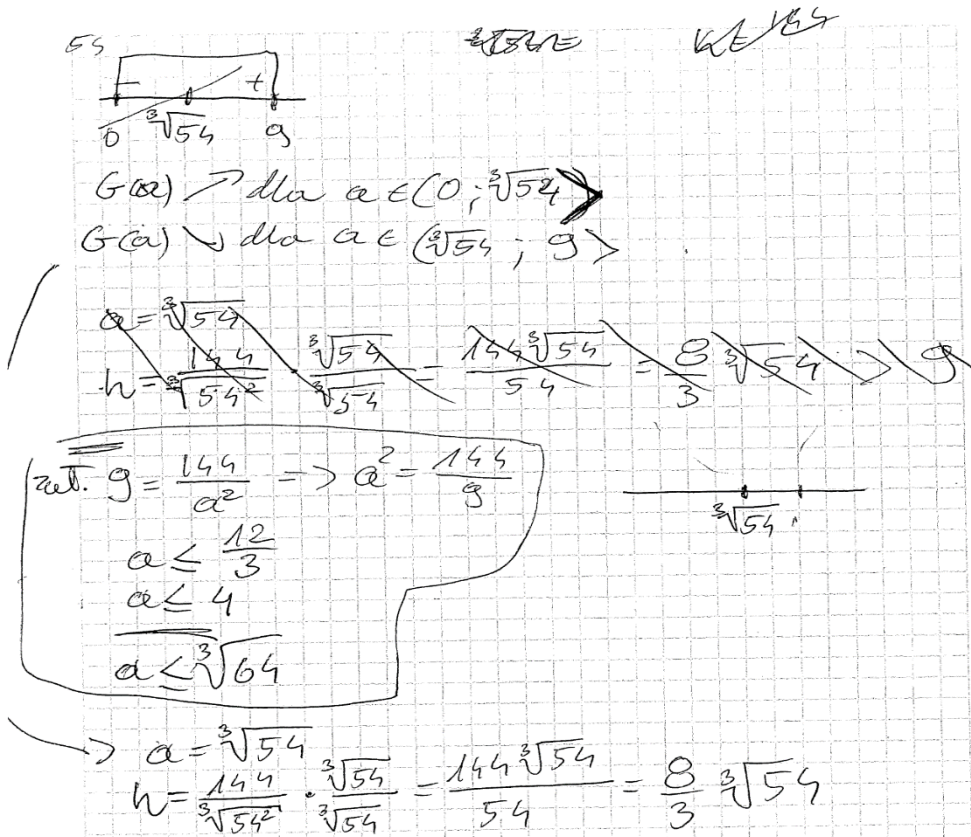 54
- +
0 ∛54 9
G(a) ↗ dla a ∈ (0 ; ∛54 >
G(a) ↘ dla a ∈ (∛54 ; 9 >
a = ∛54
h = 144/∛54² · ∛54/∛54 = 144∛54/54 = 8/3 ∛54 > 9
zał. 9 = 144/a² -> a² = 144/9
a ≤ 12/3
∛54
a ≤ 4
a ≤ ∛64
-> a = ∛54
h = 144/∛54² · ∛54/∛54 = 144∛54/54 = 8/3 ∛54